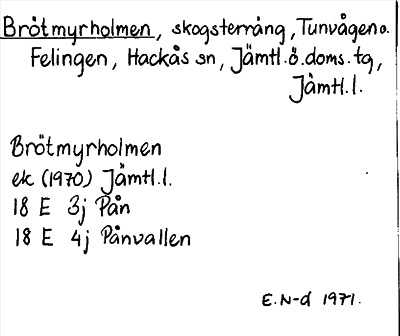 Brötmyrholmen, skogsterräng, Tunvågen o.
Felingen, Hackås sn, Jämtl. ö. doms. tg,
Jämtl. l.
Brötmyrholmen
ek (1970) Jämtl. l.
18 E 3j Pån
18 E 4j Pånvallen
E. N-d 1971.